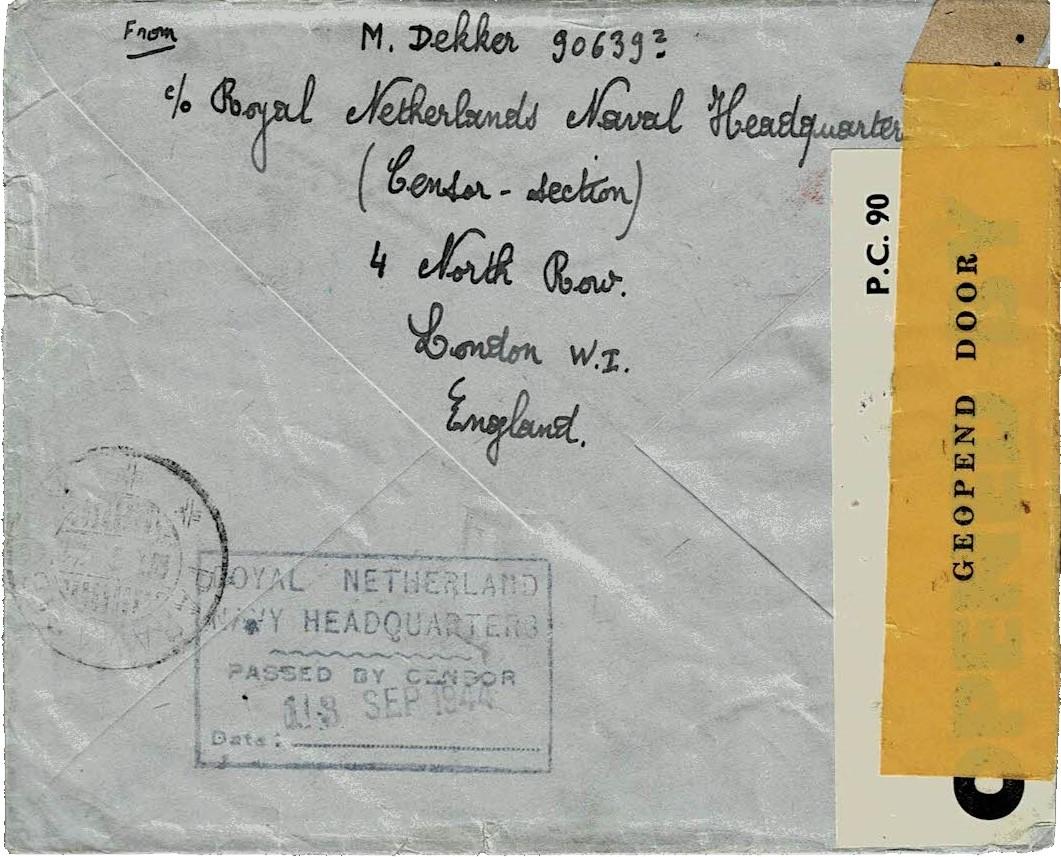 From
M. Dekker 90639²
c/o Royal Netherlands Naval Headquarter
(Censor - section)
4 North Row.
London W.I.
England.
P.C. 90
OPENED BY
GEOPEND DOOR
ROYAL NETHERLAND
NAVY HEADQUARTERS
PASSED BY CENSOR
SEP 1944
Date: